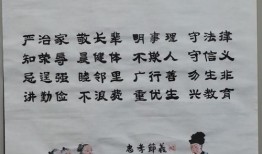 严治家 敬长辈 明事理 守法律
知荣辱 晨健体 不欺人 守信义
忌逞强 睦邻里 广行善 勿生非
讲勤俭 不浪费 重优生 兴教育
忠孝节义